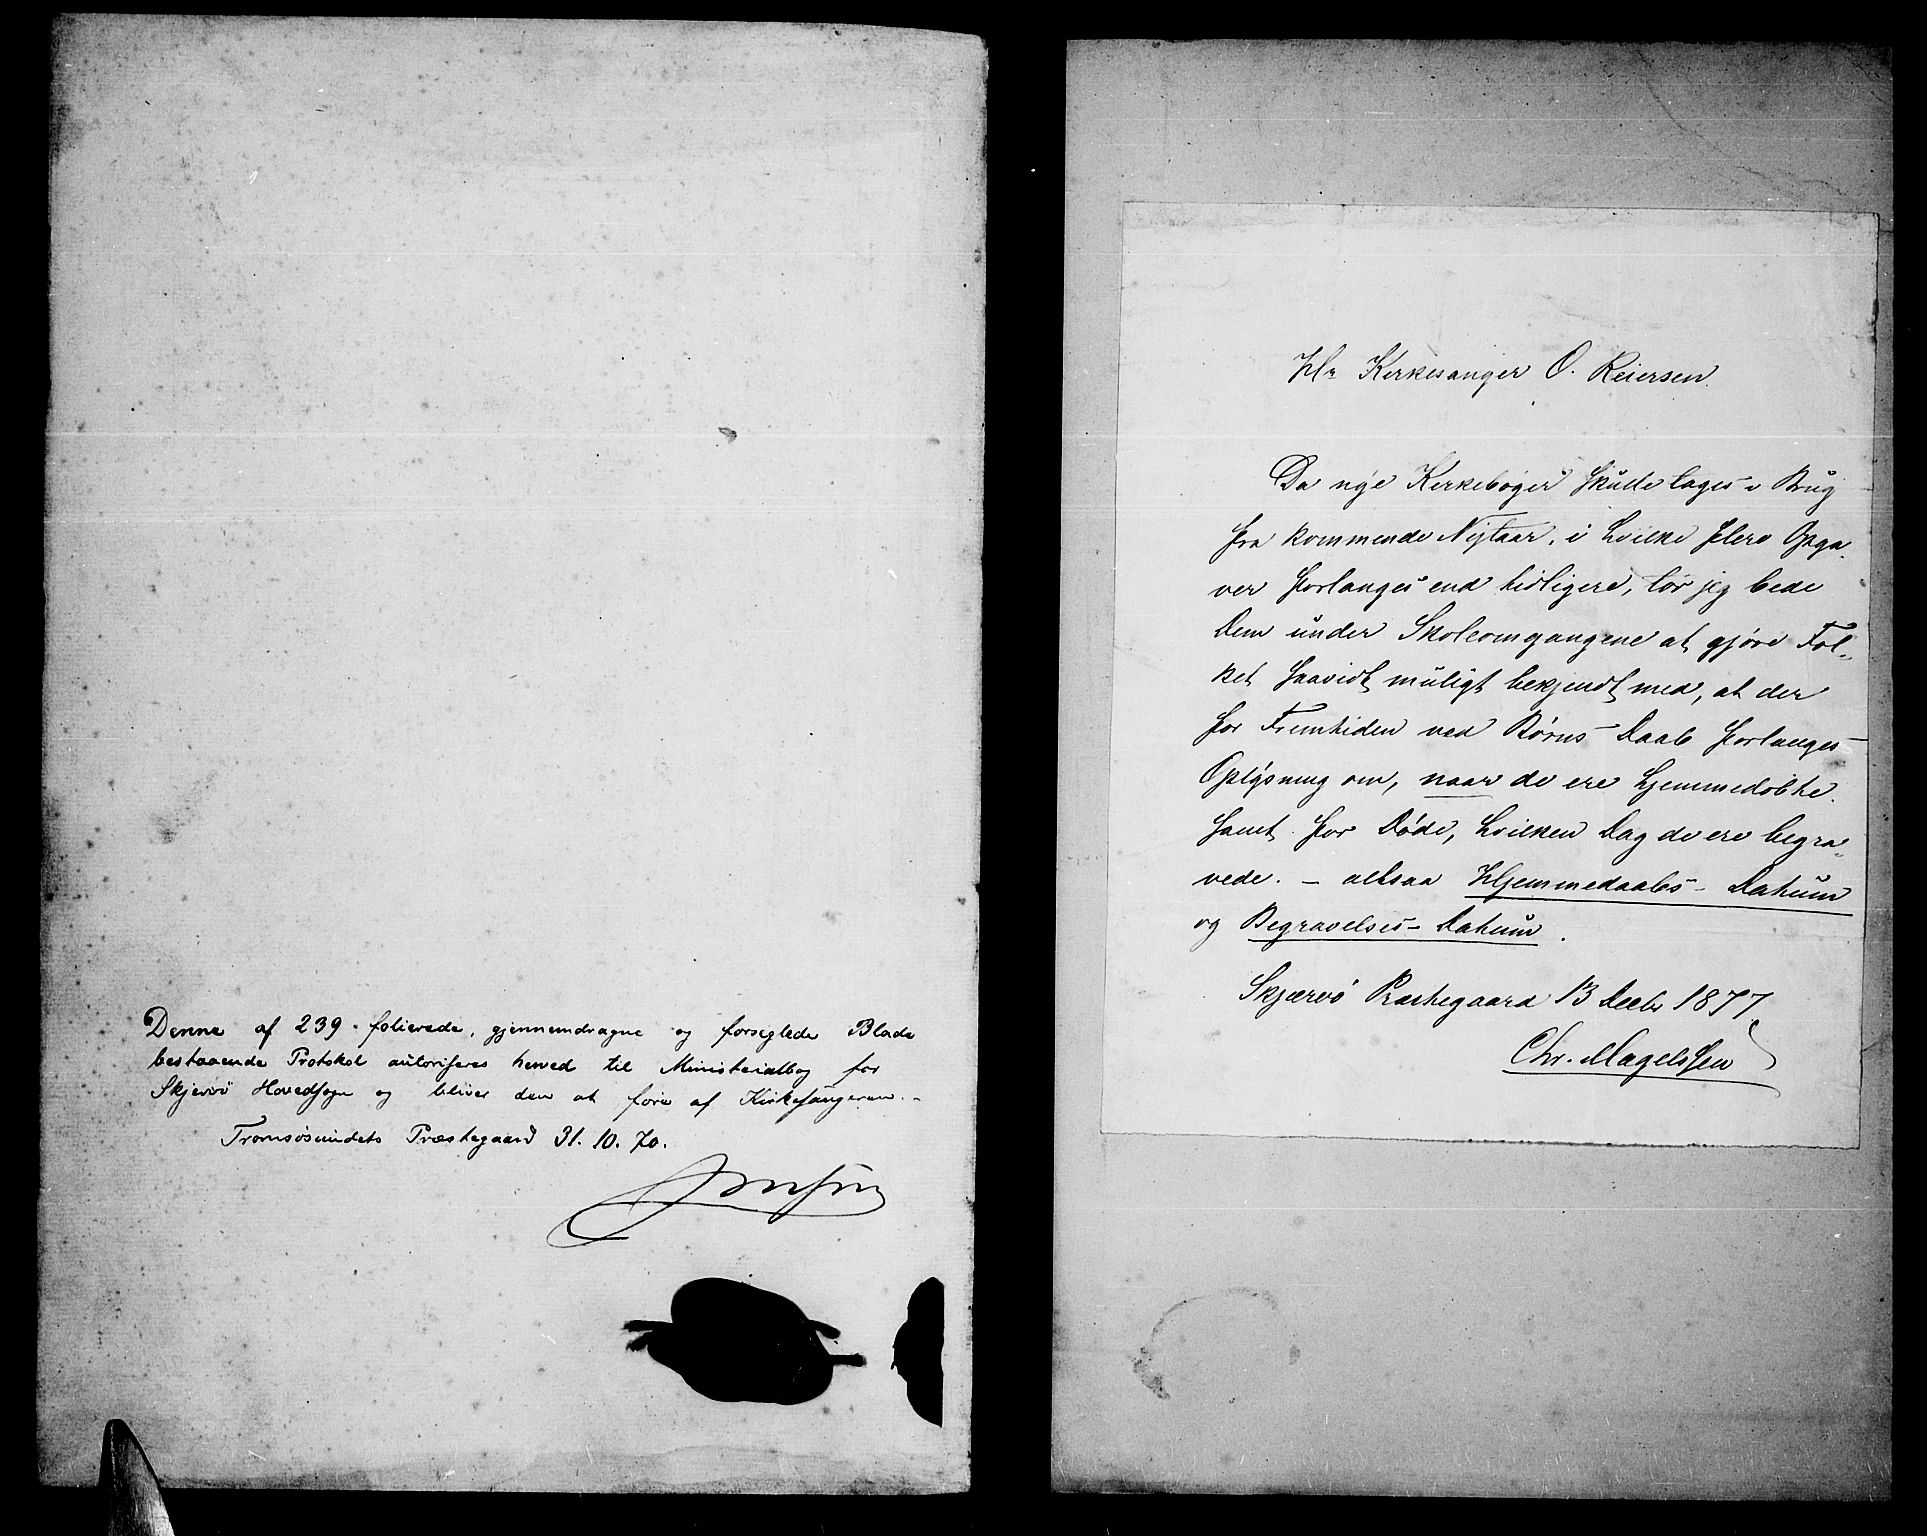 Denne af 239 - folierede, gjennemdragne og forseglede Blade
bestaaende Protokol autoriseres herved til Ministerialbog for
Skjervø Hovedsogn og bliver den at føre af Kirkesangeren. -
Tromsøsundets Præstegaard 31. 10. 70.
Hr Kirkesanger O. Reiersen
Da nye Kirkebøger skulle tages i Brug
fra kommende Nytaar, i hvilke flere Opga-
ver forlanges end tidligere, tør jeg bede
Dem under Skoleomgangene at gjøre Fol-
ket saavidt muligt bekjendt med, at der
for Fremtiden ved Børns Daab forlanges
Oplysning om, naar de ere hjemmedøbte.
samt for Døde, hvilken Dag de ere begra-
vede. - altsaa Hjemmedaabs- Datum
og Begravelses- Datum.
Skjærvø Præstegaard 13 Decbr 1877
Chr. Magelssen